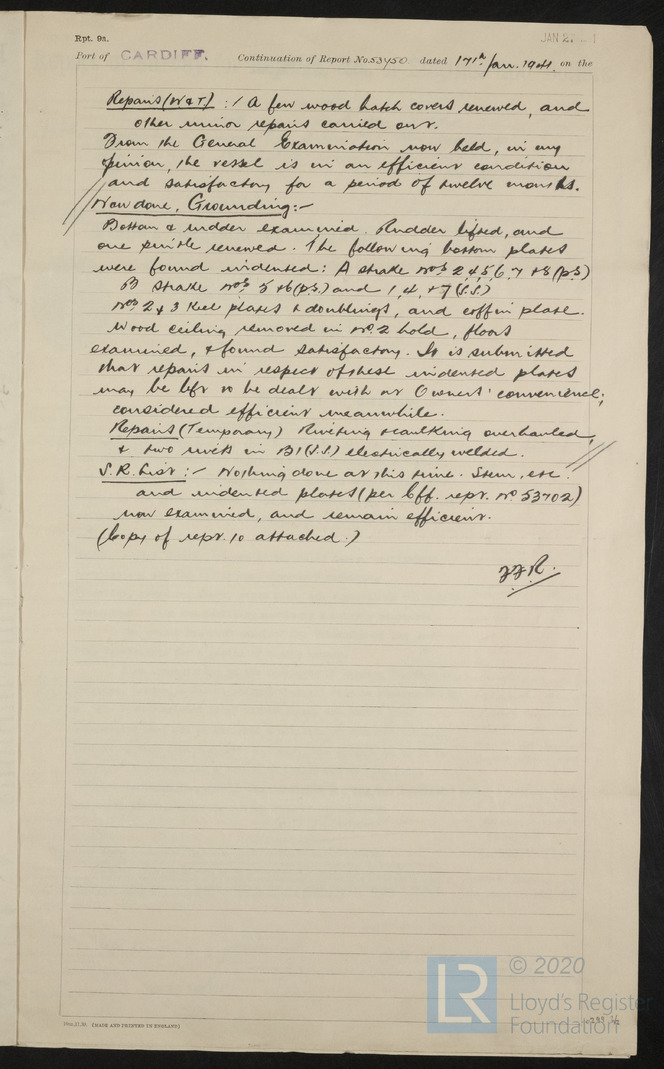 Rpt. 9a.
JAN 2
Port of CARDIFF. Continuation of Report No. 53450 dated 17th Jan. 1941 on the
Repairs (W & T) :- A few wood hatch covers renewed, and
other minor repairs carried out.
From the General Examination now held, in my
opinion, the vessel is in an efficient condition
and satisfactory for a period of twelve months.
Now done, Grounding:-
Bottom & rudder examined. Rudder lifted, and
one pintle renewed. The following bottom plates
were found indented: A strake Nos 2, 4, 5, 6, 7 + 8 (p.s)
B strake Nos 5 + 6 (p.s.) and 1, 4, + 7 (S.S.)
Nos 2 & 3 Keel plates & doublings, and coffin plate.
Wood ceiling removed in No. 2 hold, floors
examined, & found satisfactory. It is submitted
that repairs in respect of these indented plates
may be left to be dealt with at Owners' convenience;
considered efficient meanwhile.
Repairs (Temporary) Riveting & caulking overhauled,
& two rivets in B1 (S.S.) electrically welded.
S.R. List :- Nothing done at this time. Stem, etc.
and indented plates (per Cff. rept. No 53702)
now examined, and remain efficient.
(Copy of rept. 10 attached.)
(MADE AND PRINTED IN ENGLAND)
© 2020
LR
Lloyd's Register
Foundation